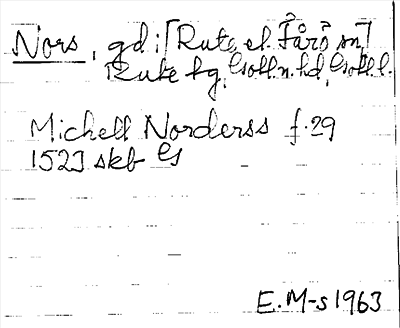 Nors, gd i [Rute el. Fårö sn]
Rute tg, Gotl.n.hd, Gotl.l.
Michell Norderss f. 29
1523 skb Gs
E.M-s 1963